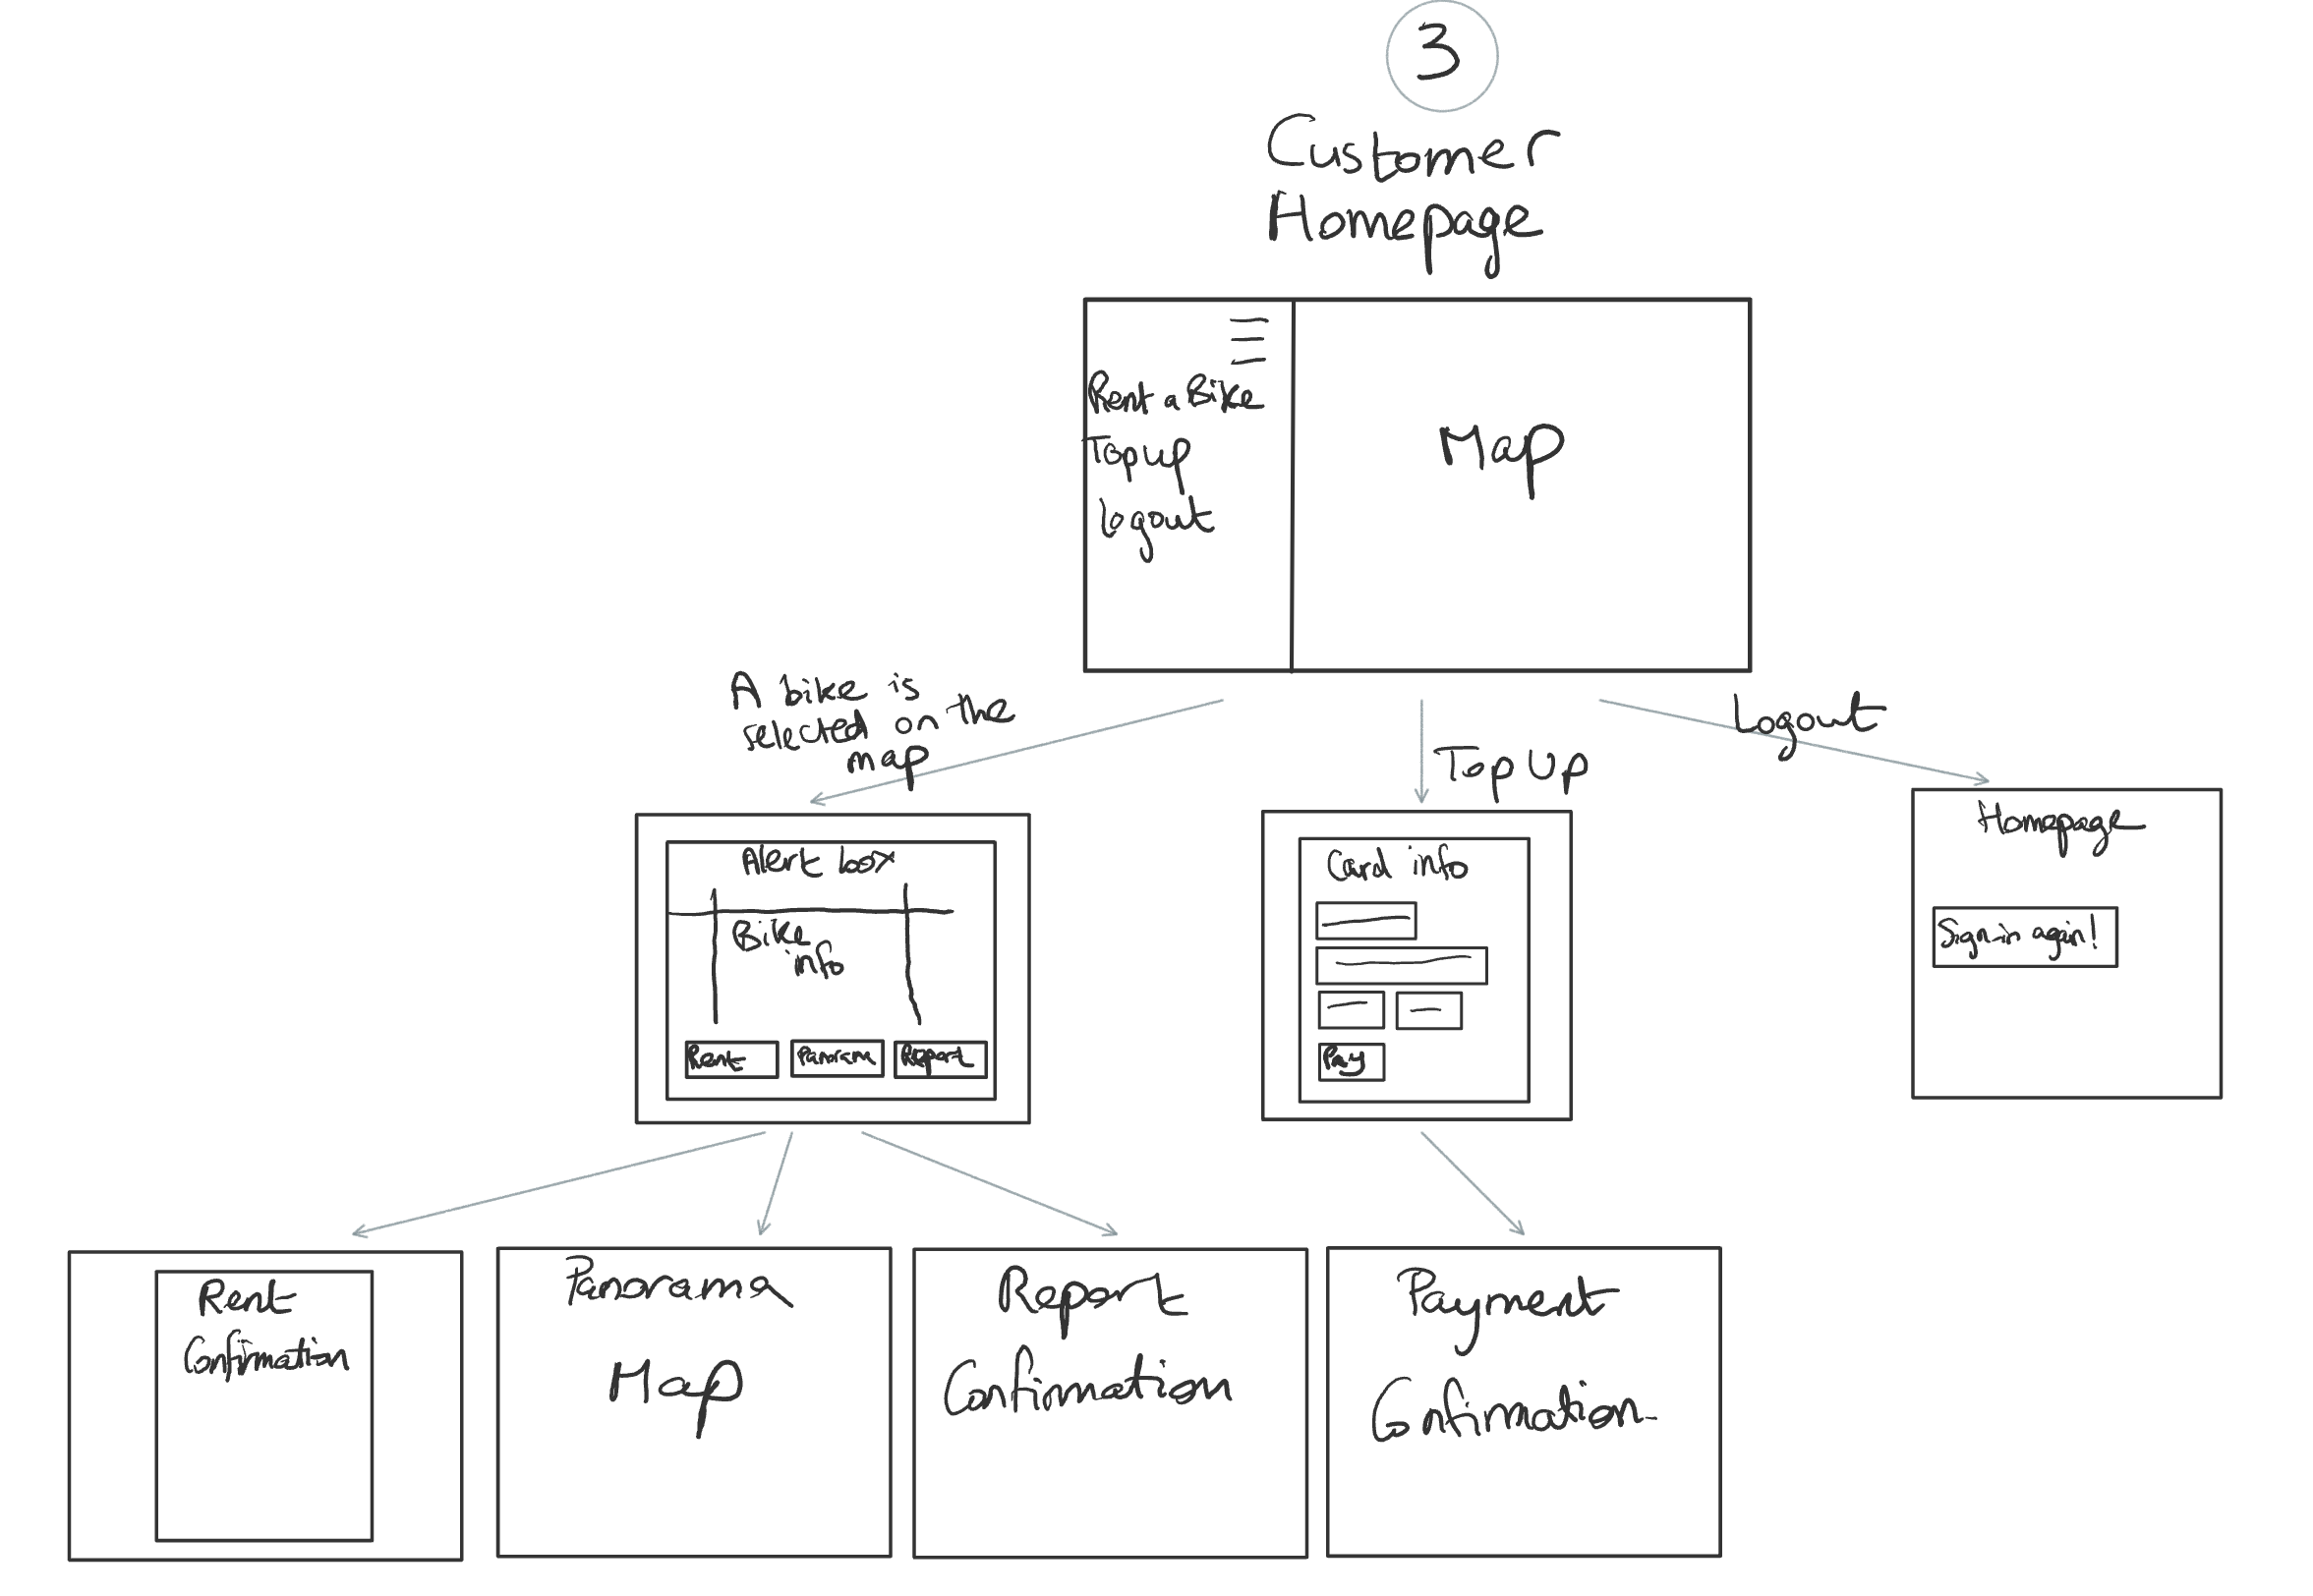 3
Customer
Homepage
Rent a Bike
Top up
Logout
Map
A bike is
selected on the
map
Top Up
Logout
Alert box
Bike
info
Rent
Panorama
Report
Card info
Pay
Homepage
Sign-in again!
Rent
Confirmation
Panorama
Map
Report
Confirmation
Payment
Confirmation